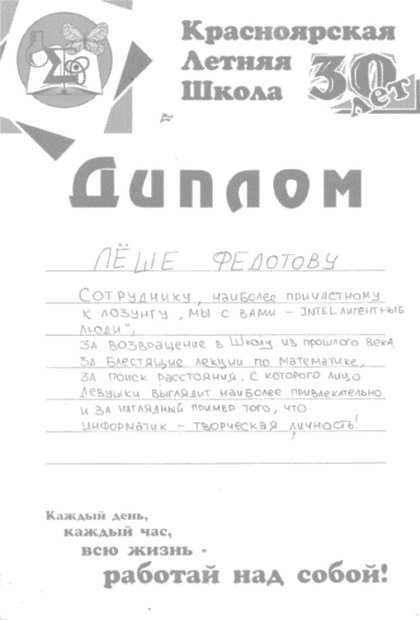 Красноярская
Летняя
Школа
30 лет
Диплом
ЛЁШЕ ФЕДОТОВУ
СОТРУДНИКУ, НАИБОЛЕЕ ПРИЧАСТНОМУ
К ЛОЗУНГУ „МЫ С ВАМИ – INTELЛИГЕНТНЫЕ
ЛЮДИ",
ЗА ВОЗВРАЩЕНИЕ В ШКОЛУ ИЗ ПРОШЛОГО ВЕКА
ЗА БЛЕСТЯЩИЕ ЛЕКЦИИ ПО МАТЕМАТИКЕ,
ЗА ПОИСК РАССТОЯНИЯ, С КОТОРОГО ЛИЦО
ДЕВУШКИ ВЫГЛЯДИТ НАИБОЛЕЕ ПРИВЛЕКАТЕЛЬНО
И ЗА НАГЛЯДНЫЙ ПРИМЕР ТОГО, ЧТО
ИНФОРМАТИК – ТВОРЧЕСКАЯ ЛИЧНОСТЬ!
Каждый день,
каждый час,
всю жизнь -
работай над собой!